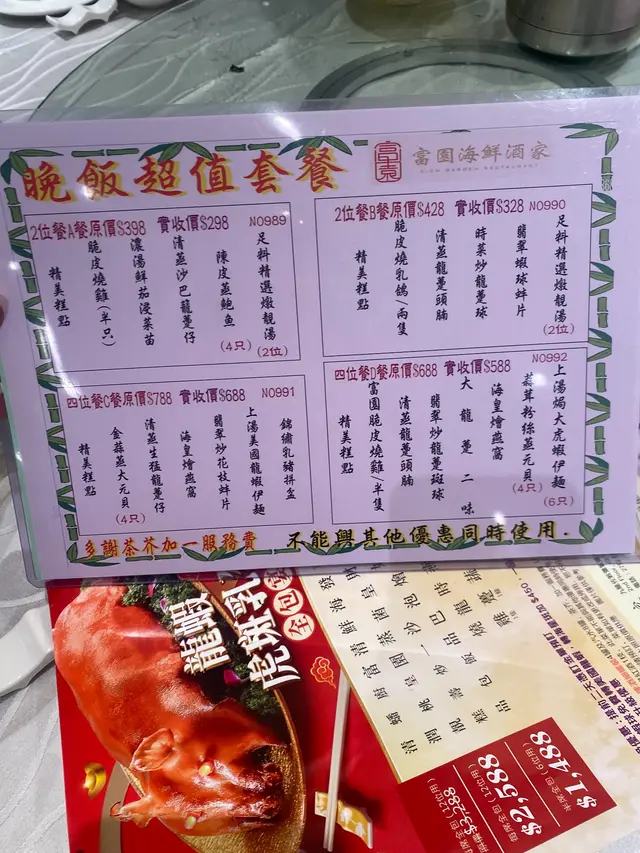 晚飯超值套餐
富園海鮮酒家
2位餐A餐原價$398 實收價$298 NO989
足料精選燉靚湯
(2位)
陳皮蒸鮑魚
(4只)
清蒸沙巴龍躉仔
濃湯鮮茄浸菜苗
脆皮燒雞(半只)
精美糕點
2位餐B餐原價$428 實收價$328 NO990
足料精選燉靚湯
(2位)
翡翠蝦球蚌片
時菜炒龍躉球
清蒸龍躉頭腩
脆皮燒乳鴿/兩隻
精美糕點
四位餐C餐原價$788 實收價$688 NO991
錦繡乳豬拼盆
上湯美國龍蝦伊麵
翡翠炒花枝蚌片
海皇燴燕窩
清蒸生猛龍躉仔
金蒜蒸大元貝
(4只)
精美糕點
四位餐D餐原價$688 實收價$588 NO992
上湯焗大虎蝦伊麵
(6只)
蒜茸粉絲蒸元貝
(4只)
海皇燴燕窩
大龍躉二味
翡翠炒龍躉斑球
清蒸龍躉頭腩
富園脆皮燒雞/半隻
精美糕點
多謝茶芥加一服務費
不能與其他優惠同時使用.
龍蝦
虎斑乳
$1,488
半席全包(6位用)
$2,588